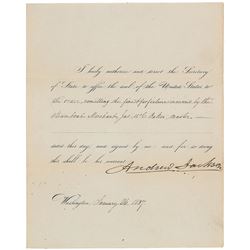 I hereby authorize and direct the Secretary
of State to affix the seal of the United States to
the order, remitting the forfeiture incurred by the
Merchant, Jas. McC Eaton, master
dated this day, and signed by me: and for so doing
this shall be his warrant.
Andrew Jackson
Washington, January 1837